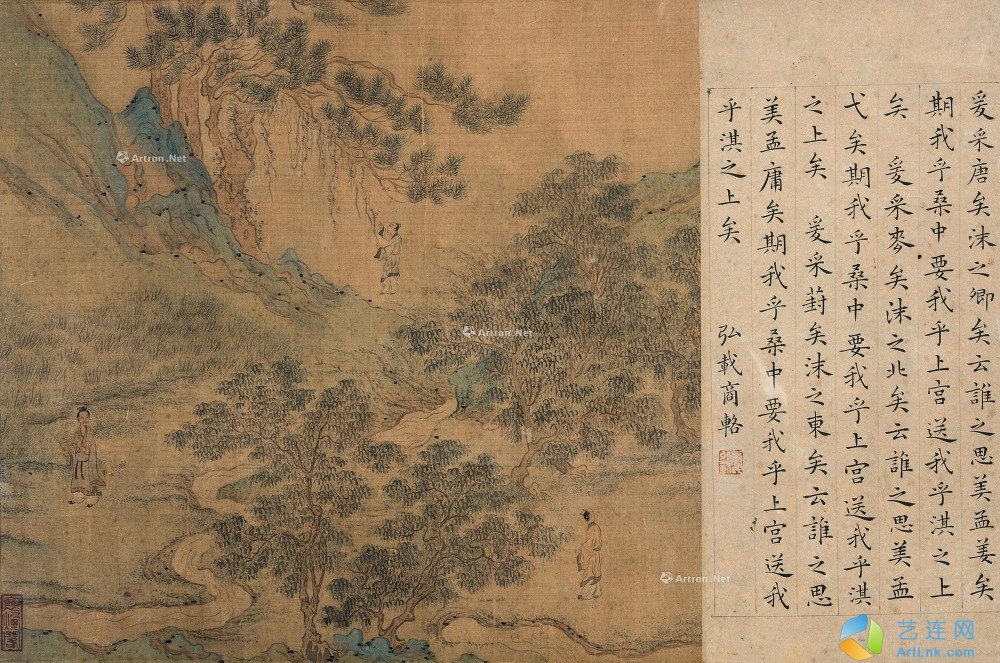 爰采唐矣沬之鄉矣云誰之思美孟姜矣
期我乎桑中要我乎上宫送我乎淇之上
矣 爰采麥矣沬之北矣云誰之思美孟
弋矣期我乎桑中要我乎上宫送我乎淇
之上矣 爰采葑矣沬之東矣云誰之思
美孟庸矣期我乎桑中要我乎上宫送我
乎淇之上矣 弘載商輅
Artron.Net
Artron.Net
Artron.Net
艺连网
ArtLnk.com